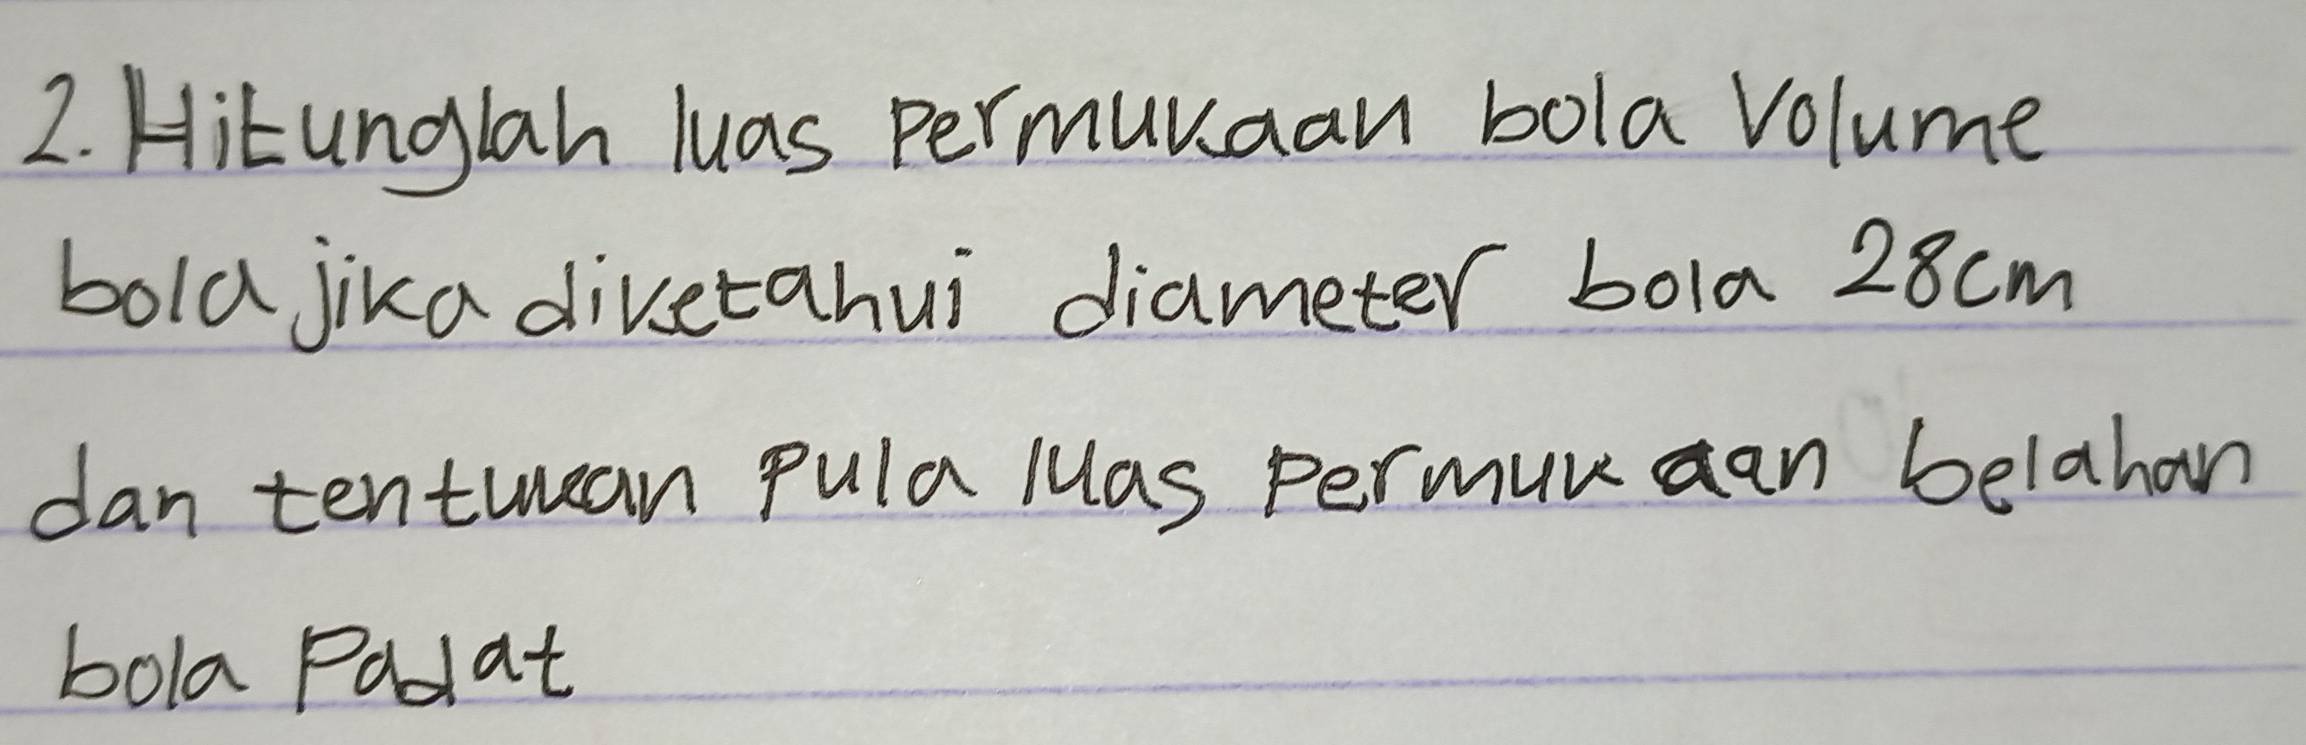 2. Hitunglah luas Permukaan bola Volume
bola jika diketahui diameter bola 28cm
dan tentukan Pula luas Permukaan belahan
bola Padat